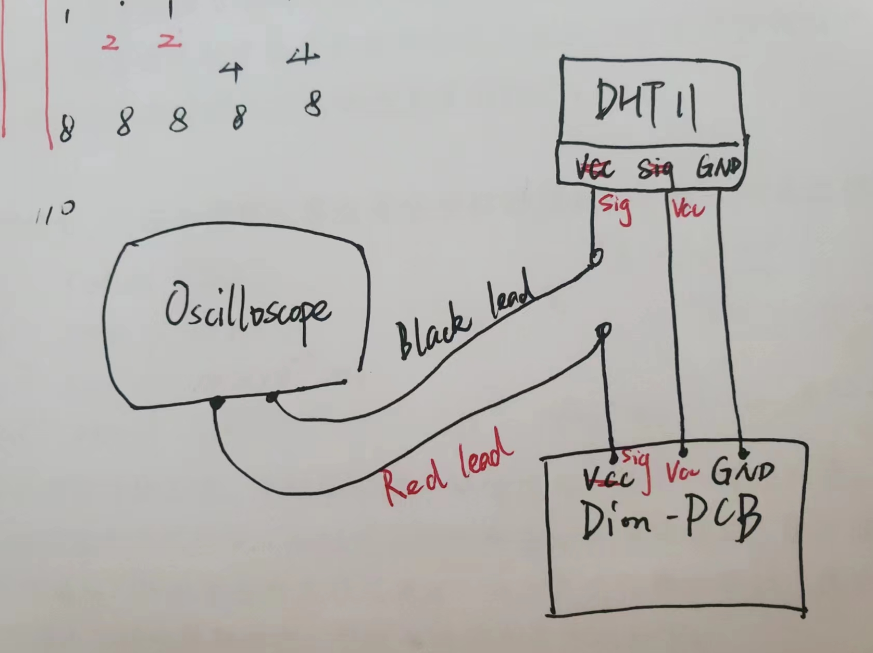 2 2
4 4
8 8 8 8 8
110
DHT 11
VCC Sig GND
Sig Vcc
Oscilloscope
Black lead
Red lead
Sig
VCC Vcc GND
Dim-PCB